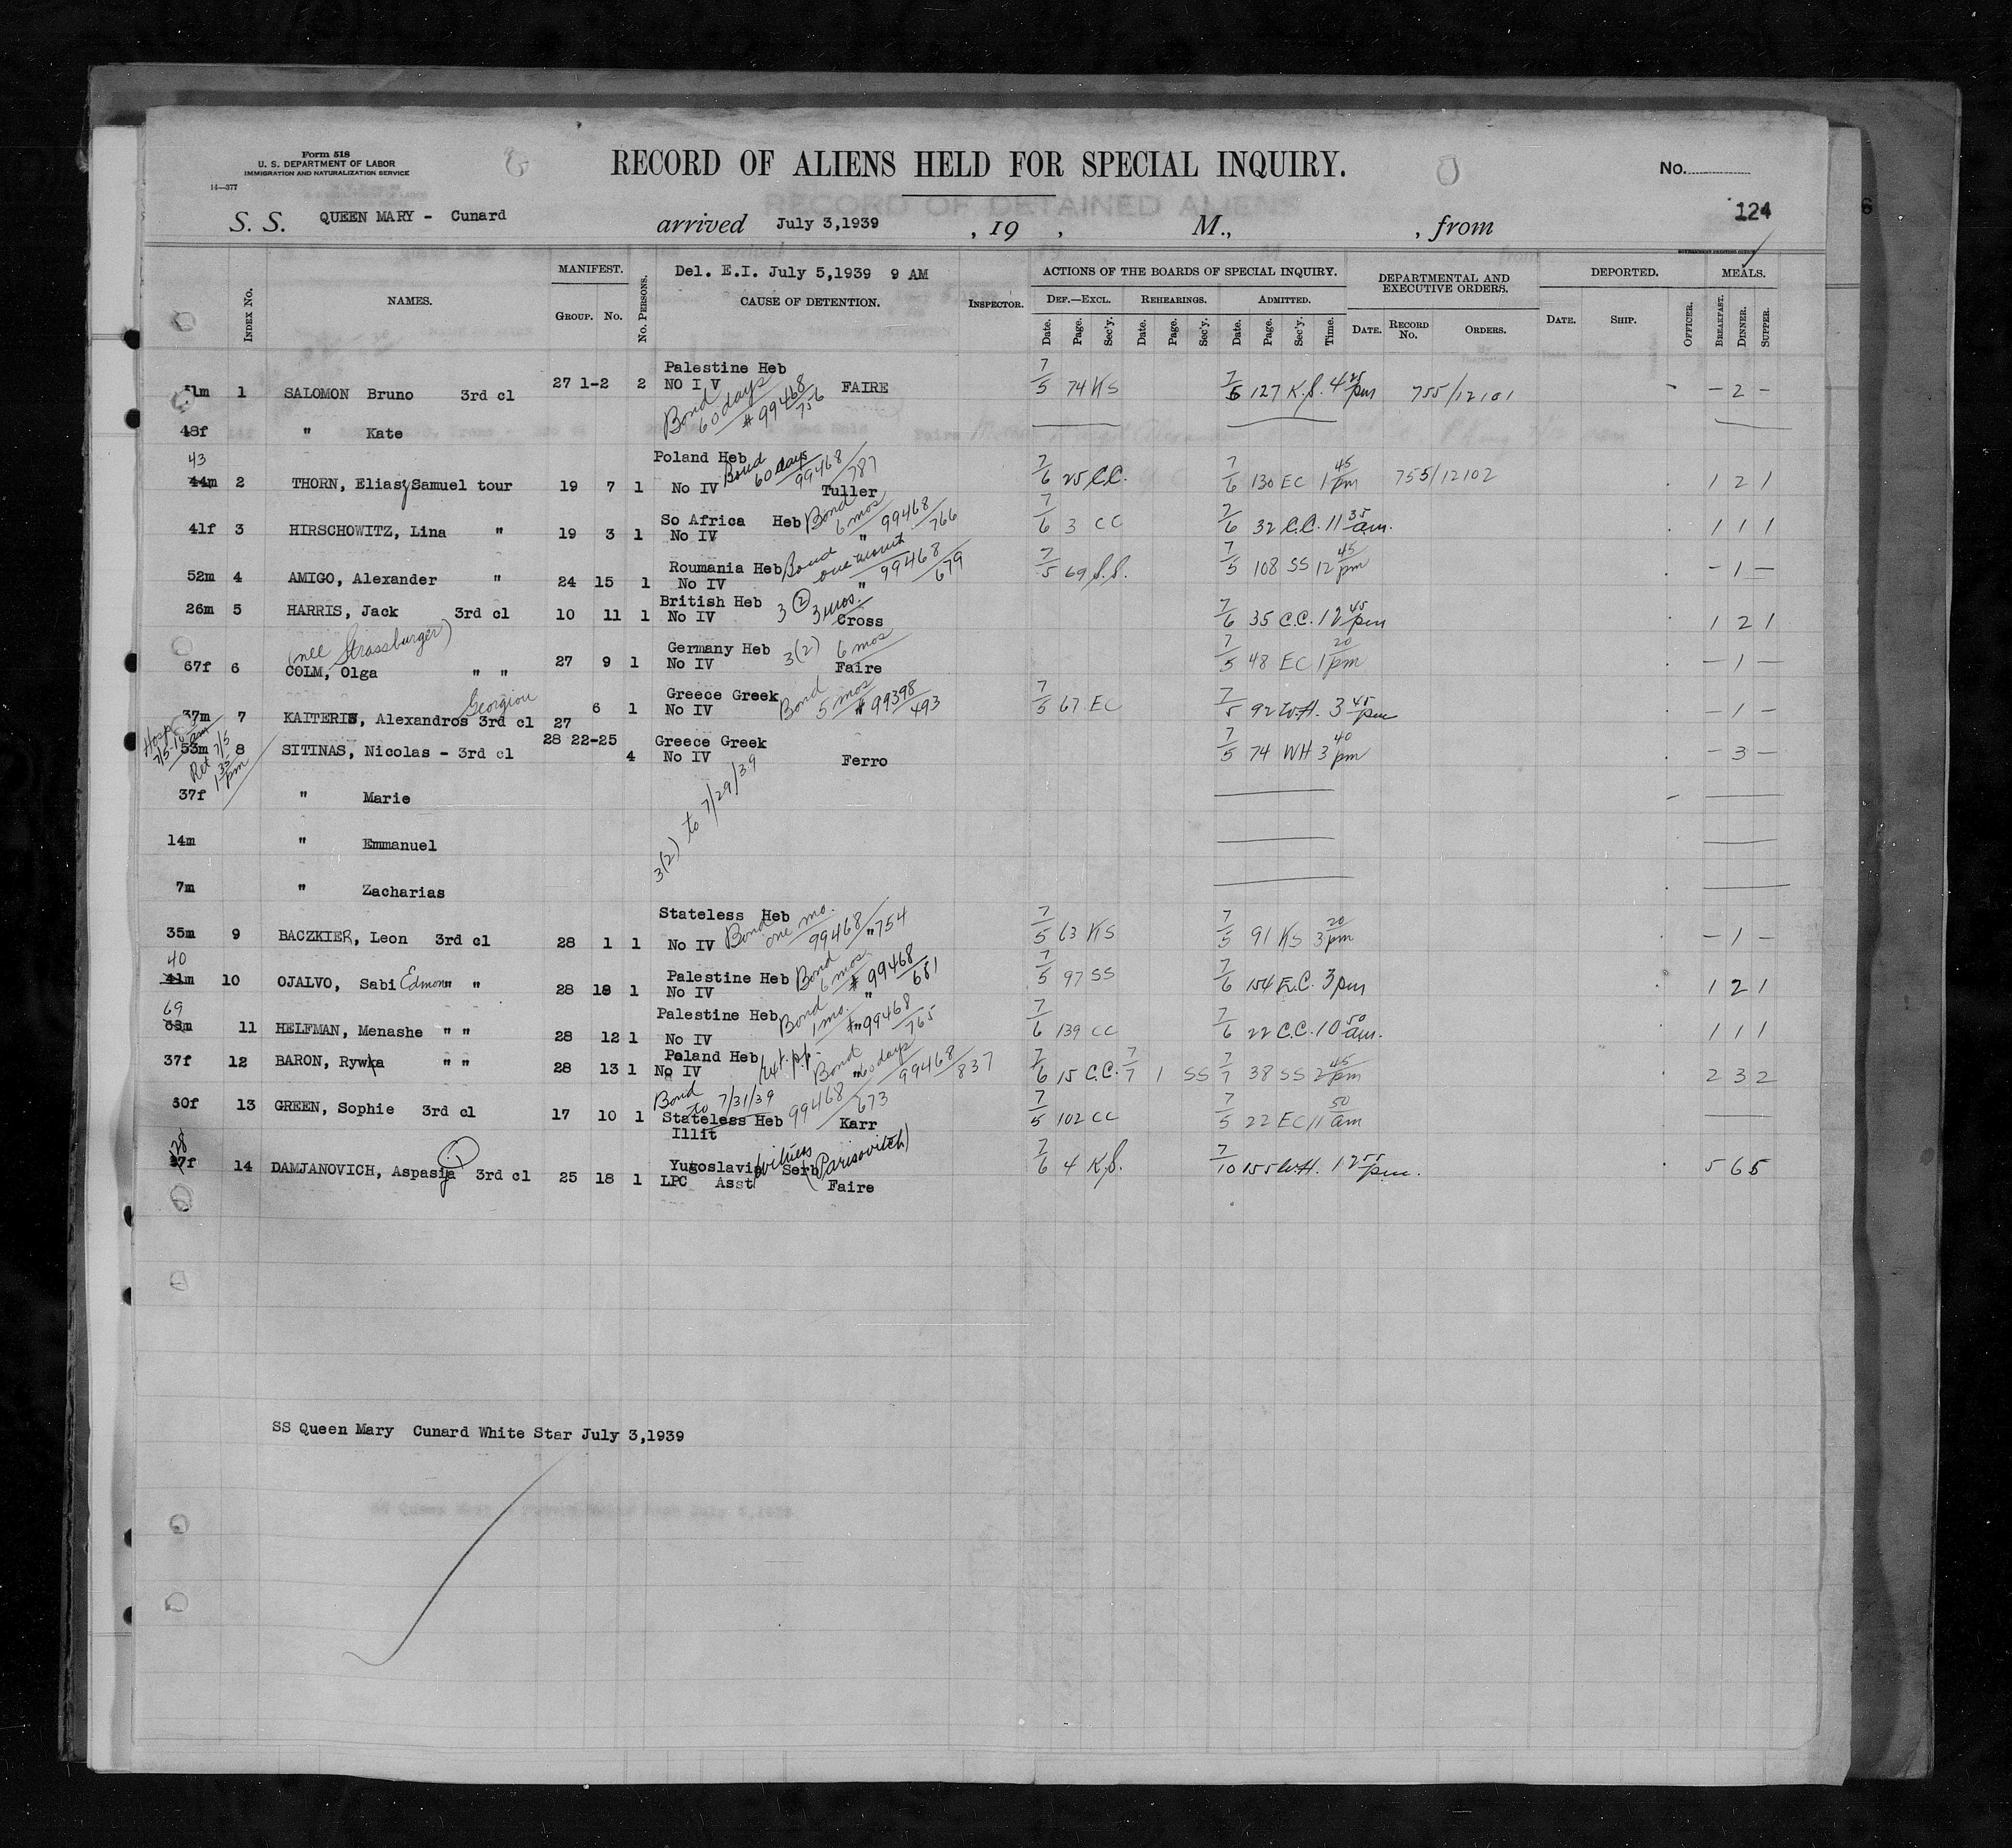 Form 518
U. S. DEPARTMENT OF LABOR
IMMIGRATION AND NATURALIZATION SERVICE
14—377
RECORD OF ALIENS HELD FOR SPECIAL INQUIRY.
No.
124
S. S. QUEEN MARY - Cunard arrived July 3,1939 , 19 , M., , from
GOVERNMENT PRINTING OFFICE
Index No. NAMES. MANIFEST. Group. No. No. Persons. Del. E.I. July 5,1939 9 AM CAUSE OF DETENTION. Inspector. ACTIONS OF THE BOARDS OF SPECIAL INQUIRY. DEPARTMENTAL AND EXECUTIVE ORDERS. DEPORTED. MEALS.
Def.—Excl. Rehearings. Admitted.
Date. Page. Sec'y. Date. Page. Sec'y. Date. Page. Sec'y. Time. Date. Record No. Orders. Date. Ship. Officer. Breakfast. Dinner. Supper.
Palestine Heb
1m 1 SALOMON Bruno 3rd cl 27 1-2 2 NO I V FAIRE 7/5 74 KS 7/6 127 K.S. 4 25 pm 755/12101 - 2 -
Bond 60 days # 99468/756
48f " Kate
43
Poland Heb Bond 60 days 99468/787
44m 2 THORN, Elias Samuel tour 19 7 1 No IV Tuller 7/6 25 C.C. 7/6 130 EC 1 45 pm 755/12102 1 2 1
So Africa Heb Bond 6 mos 99468/766
41f 3 HIRSCHOWITZ, Lina " 19 3 1 No IV " 7/6 3 CC 7/6 32 C.C. 11 35 am. 1 1 1
Roumania Heb Bond one month 99468/679
52m 4 AMIGO, Alexander " 24 15 1 No IV " 7/5 69 S.S. 7/5 108 SS 12 45 pm - 1 -
British Heb 3 (2) 3 mos.
26m 5 HARRIS, Jack 3rd cl 10 11 1 No IV Cross 7/6 35 C.C. 12 45 pm 1 2 1
(nee Strassburger)
Germany Heb 3(2) 6 mos
67f 6 COLM, Olga " " 27 9 1 No IV Faire 7/5 48 EC 1 20 pm - 1 -
Georgiou
Greece Greek Bond 5 mos # 99398/493
37m 7 KAITERIS, Alexandros 3rd cl 27 6 1 No IV 7/5 67 EC 7/5 92 W.H. 3 45 pm - 1 -
Hosp 7/5-10 am
Ret 7/5 1 35 pm
53m 8 SITINAS, Nicolas - 3rd cl 28 22-25 4 Greece Greek
No IV Ferro 7/5 74 WH 3 40 pm - 3 -
3(2) to 7/29/39
37f " Marie
14m " Emmanuel
7m " Zacharias
Stateless Heb Bond one mo. 99468/754
35m 9 BACZKIER, Leon 3rd cl 28 1 1 No IV " 7/5 63 KS 7/5 91 KS 3 20 pm - 1 -
40
Palestine Heb Bond 6 mos. # 99468/681
41m 10 OJALVO, Sabi Edmon " " 28 18 1 No IV " 7/5 97 SS 7/6 154 E.C. 3 pm 1 2 1
69
Palestine Heb Bond 1 mo. # 99468/765
11 HELFMAN, Menashe " " 28 12 1 No IV " 7/6 139 CC 7/6 22 C.C. 10 50 am. 1 1 1
Poland Heb Ext. p.p. Bond 60 days 99468/837
37f 12 BARON, Rywka " " 28 13 1 No IV " 7/6 15 C.C. 7/7 1 SS 7/7 38 SS 2 45 pm 2 3 2
Bond to 7/31/39 99468/673
13 GREEN, Sophie 3rd cl 17 10 1 Stateless Heb Karr 7/5 102 CC 7/5 22 EC 11 50 am
Illit
28
Yugoslavia Serb witness (Parisovitch)
37f 14 DAMJANOVICH, Aspasija 3rd cl 25 18 1 LPC Asst Faire 7/6 4 K.S. 7/10 155 W.H. 12 55 pm. 5 6 5
SS Queen Mary Cunard White Star July 3,1939